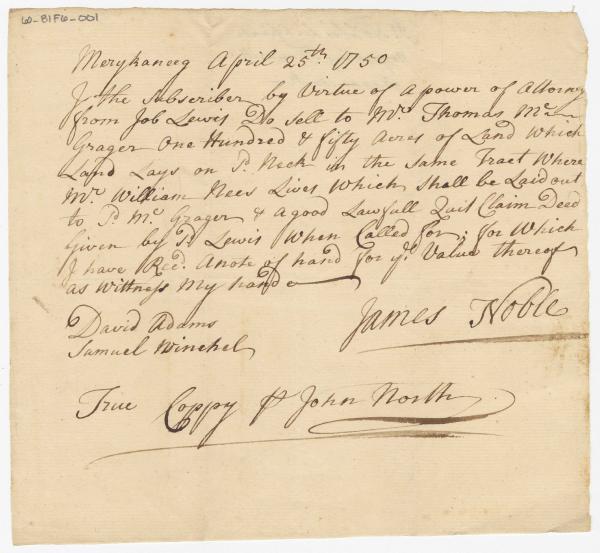 60-81F6-001
Merykaneeg April 25th 1750
I the Subscriber by Virtue of a power of Attorny
from Job Lewis Do sell to Mr. Thomas Mc
Grager One Hundred & fifty Acres of Land Which
Land Lays on Sd. Neck in the Same Tract Where
Mr. William Nees Lives Which shall be Laid out
to Sd. Mc. Grager & a good Lawfull Quit Claim Deed
Given by Sd. Lewis When Called For; for Which
I have Recd. a note of hand for ye. Value thereof
as Wittness My hand
David Adams
James Noble
Samuel Winchel
True Coppy pr John North